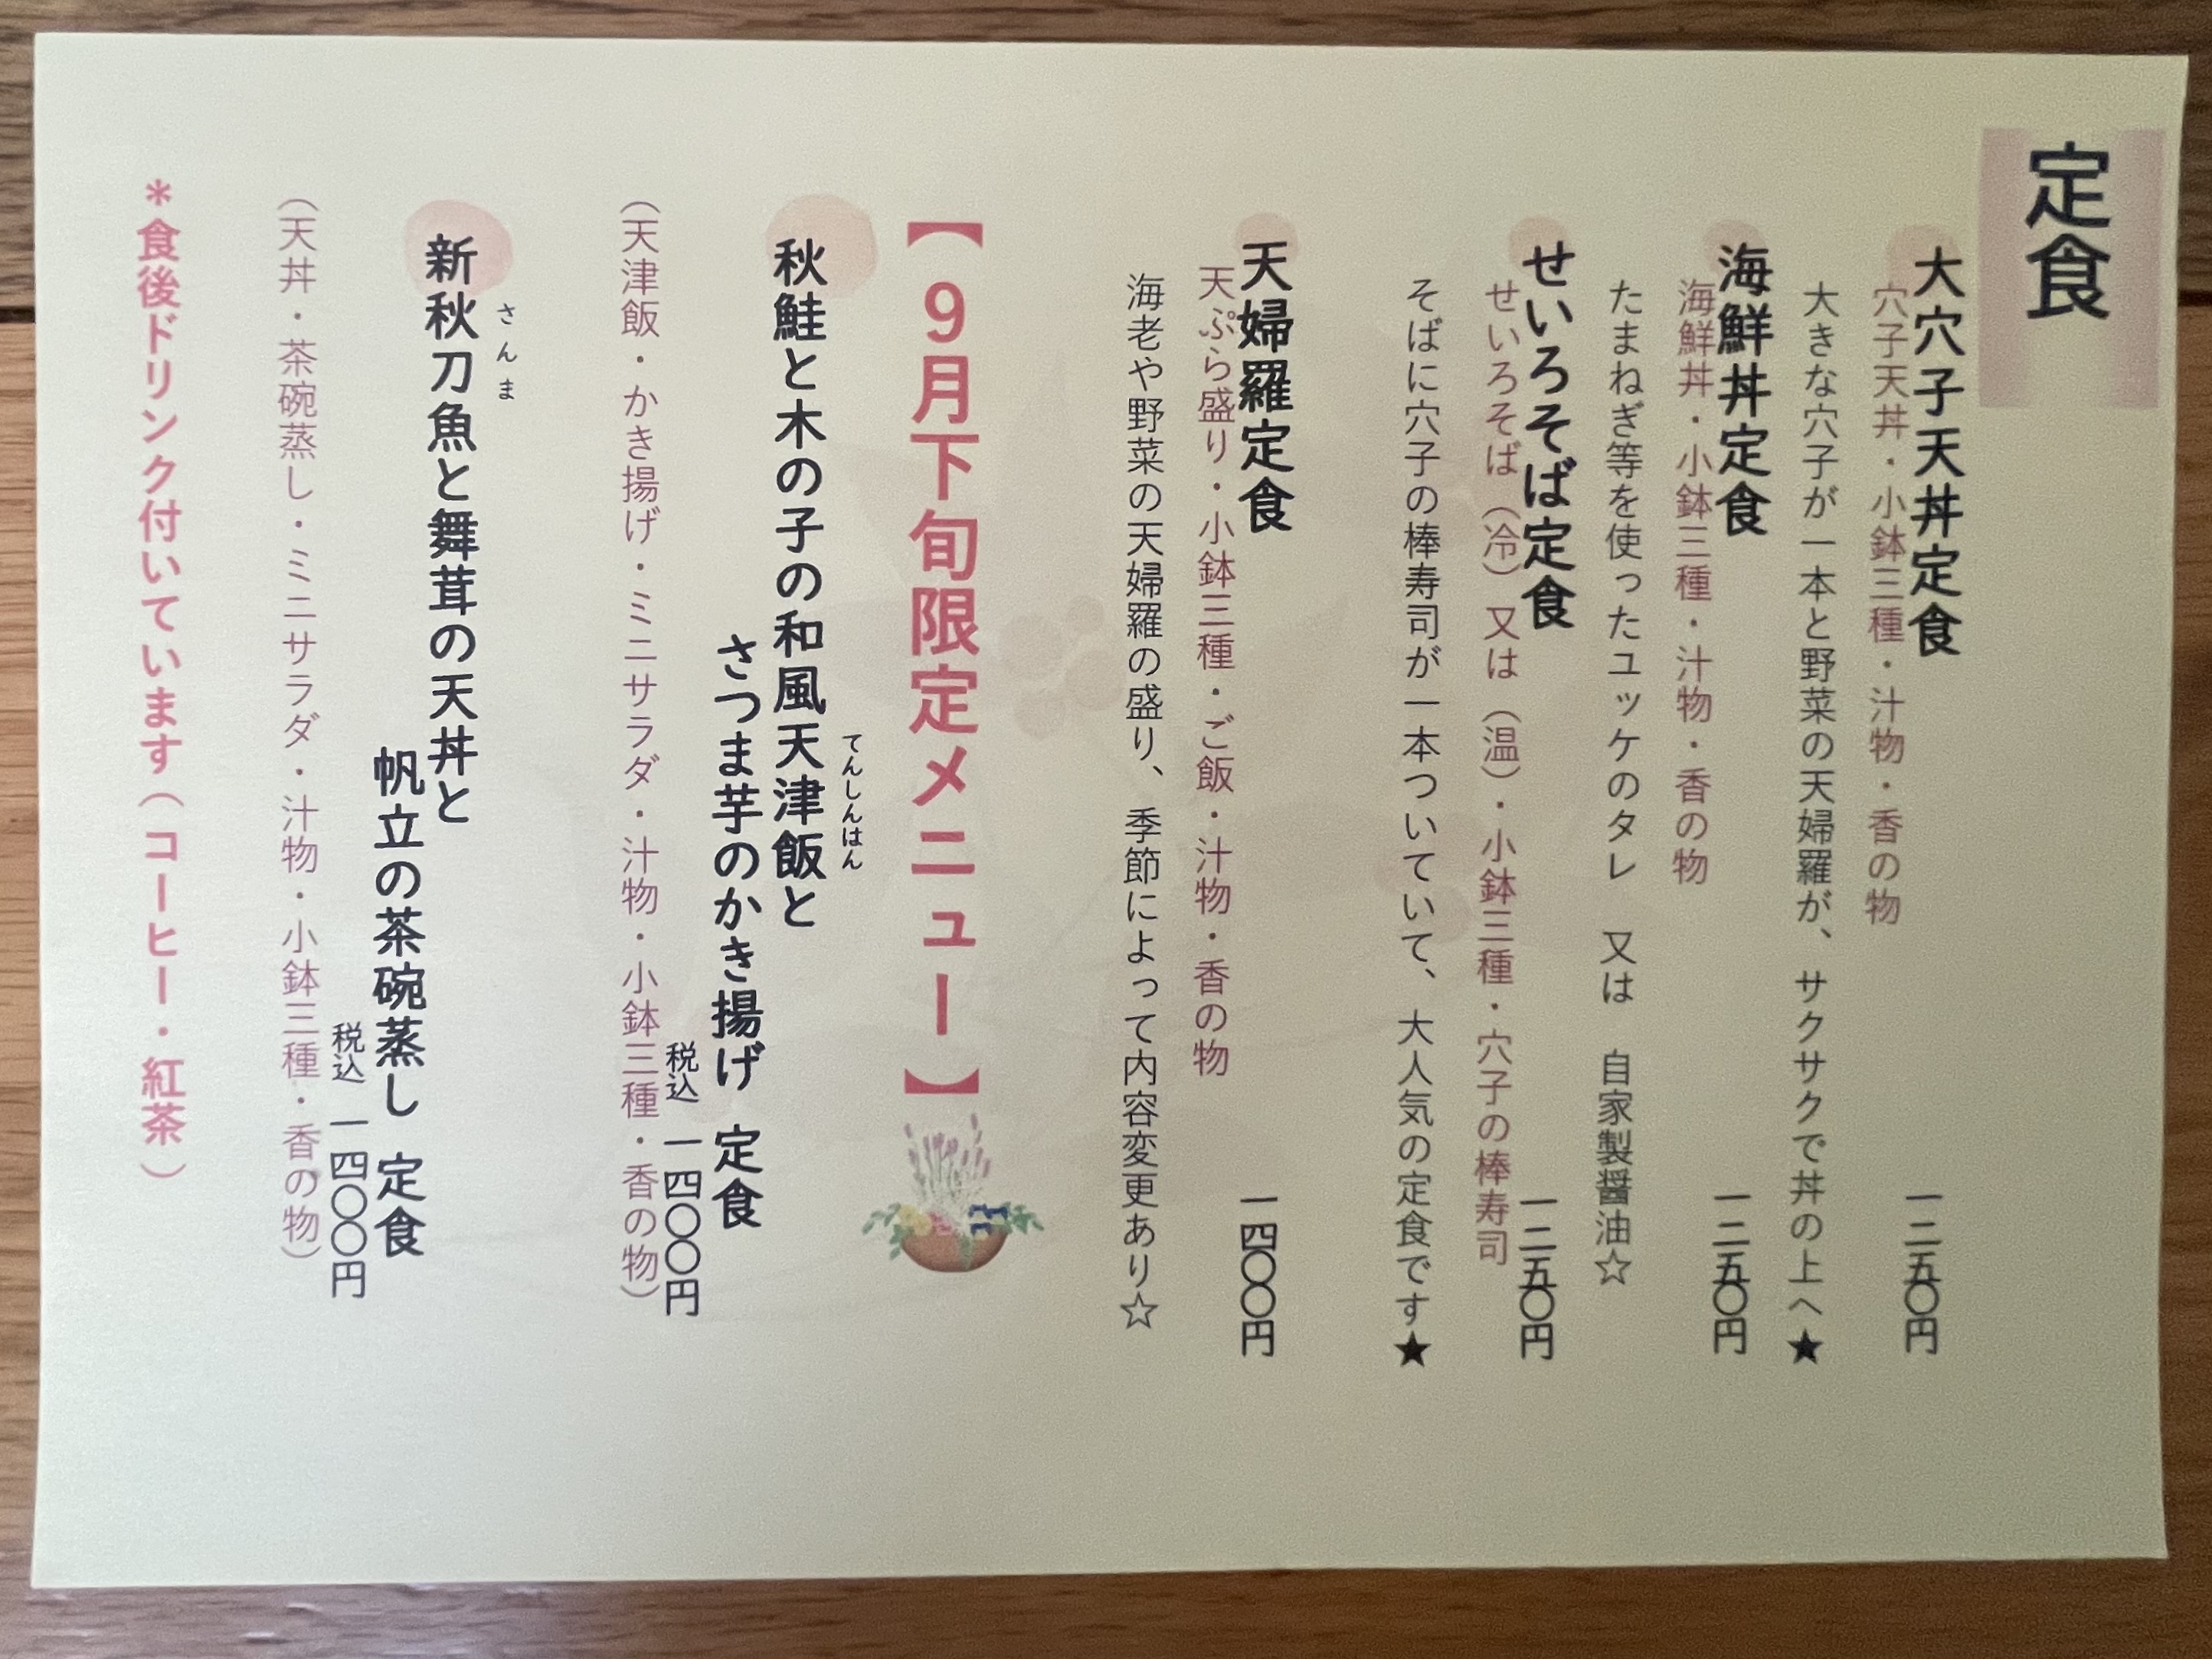 定食
大穴子天丼定食
一二五〇円
穴子天丼・小鉢三種・汁物・香の物
大きな穴子が一本と野菜の天婦羅が、サクサクで丼の上へ★
海鮮丼定食
一二五〇円
海鮮丼・小鉢三種・汁物・香の物
たまねぎ等を使ったユッケのタレ　又は　自家製醤油☆
せいろそば定食
一二五〇円
せいろそば（冷）又は（温）・小鉢三種・穴子の棒寿司
そばに穴子の棒寿司が一本ついていて、大人気の定食です★
天婦羅定食
一四〇〇円
天ぷら盛り・小鉢三種・ご飯・汁物・香の物
海老や野菜の天婦羅の盛り、季節によって内容変更あり☆
【９月下旬限定メニュー】
てんしんはん
秋鮭と木の子の和風天津飯と
さつま芋のかき揚げ 定食
税込 一四〇〇円
（天津飯・かき揚げ・ミニサラダ・汁物・小鉢三種・香の物）
さんま
新秋刀魚と舞茸の天丼と
帆立の茶碗蒸し 定食
税込 一四〇〇円
（天丼・茶碗蒸し・ミニサラダ・汁物・小鉢三種・香の物）
＊食後ドリンク付いています（コーヒー・紅茶）